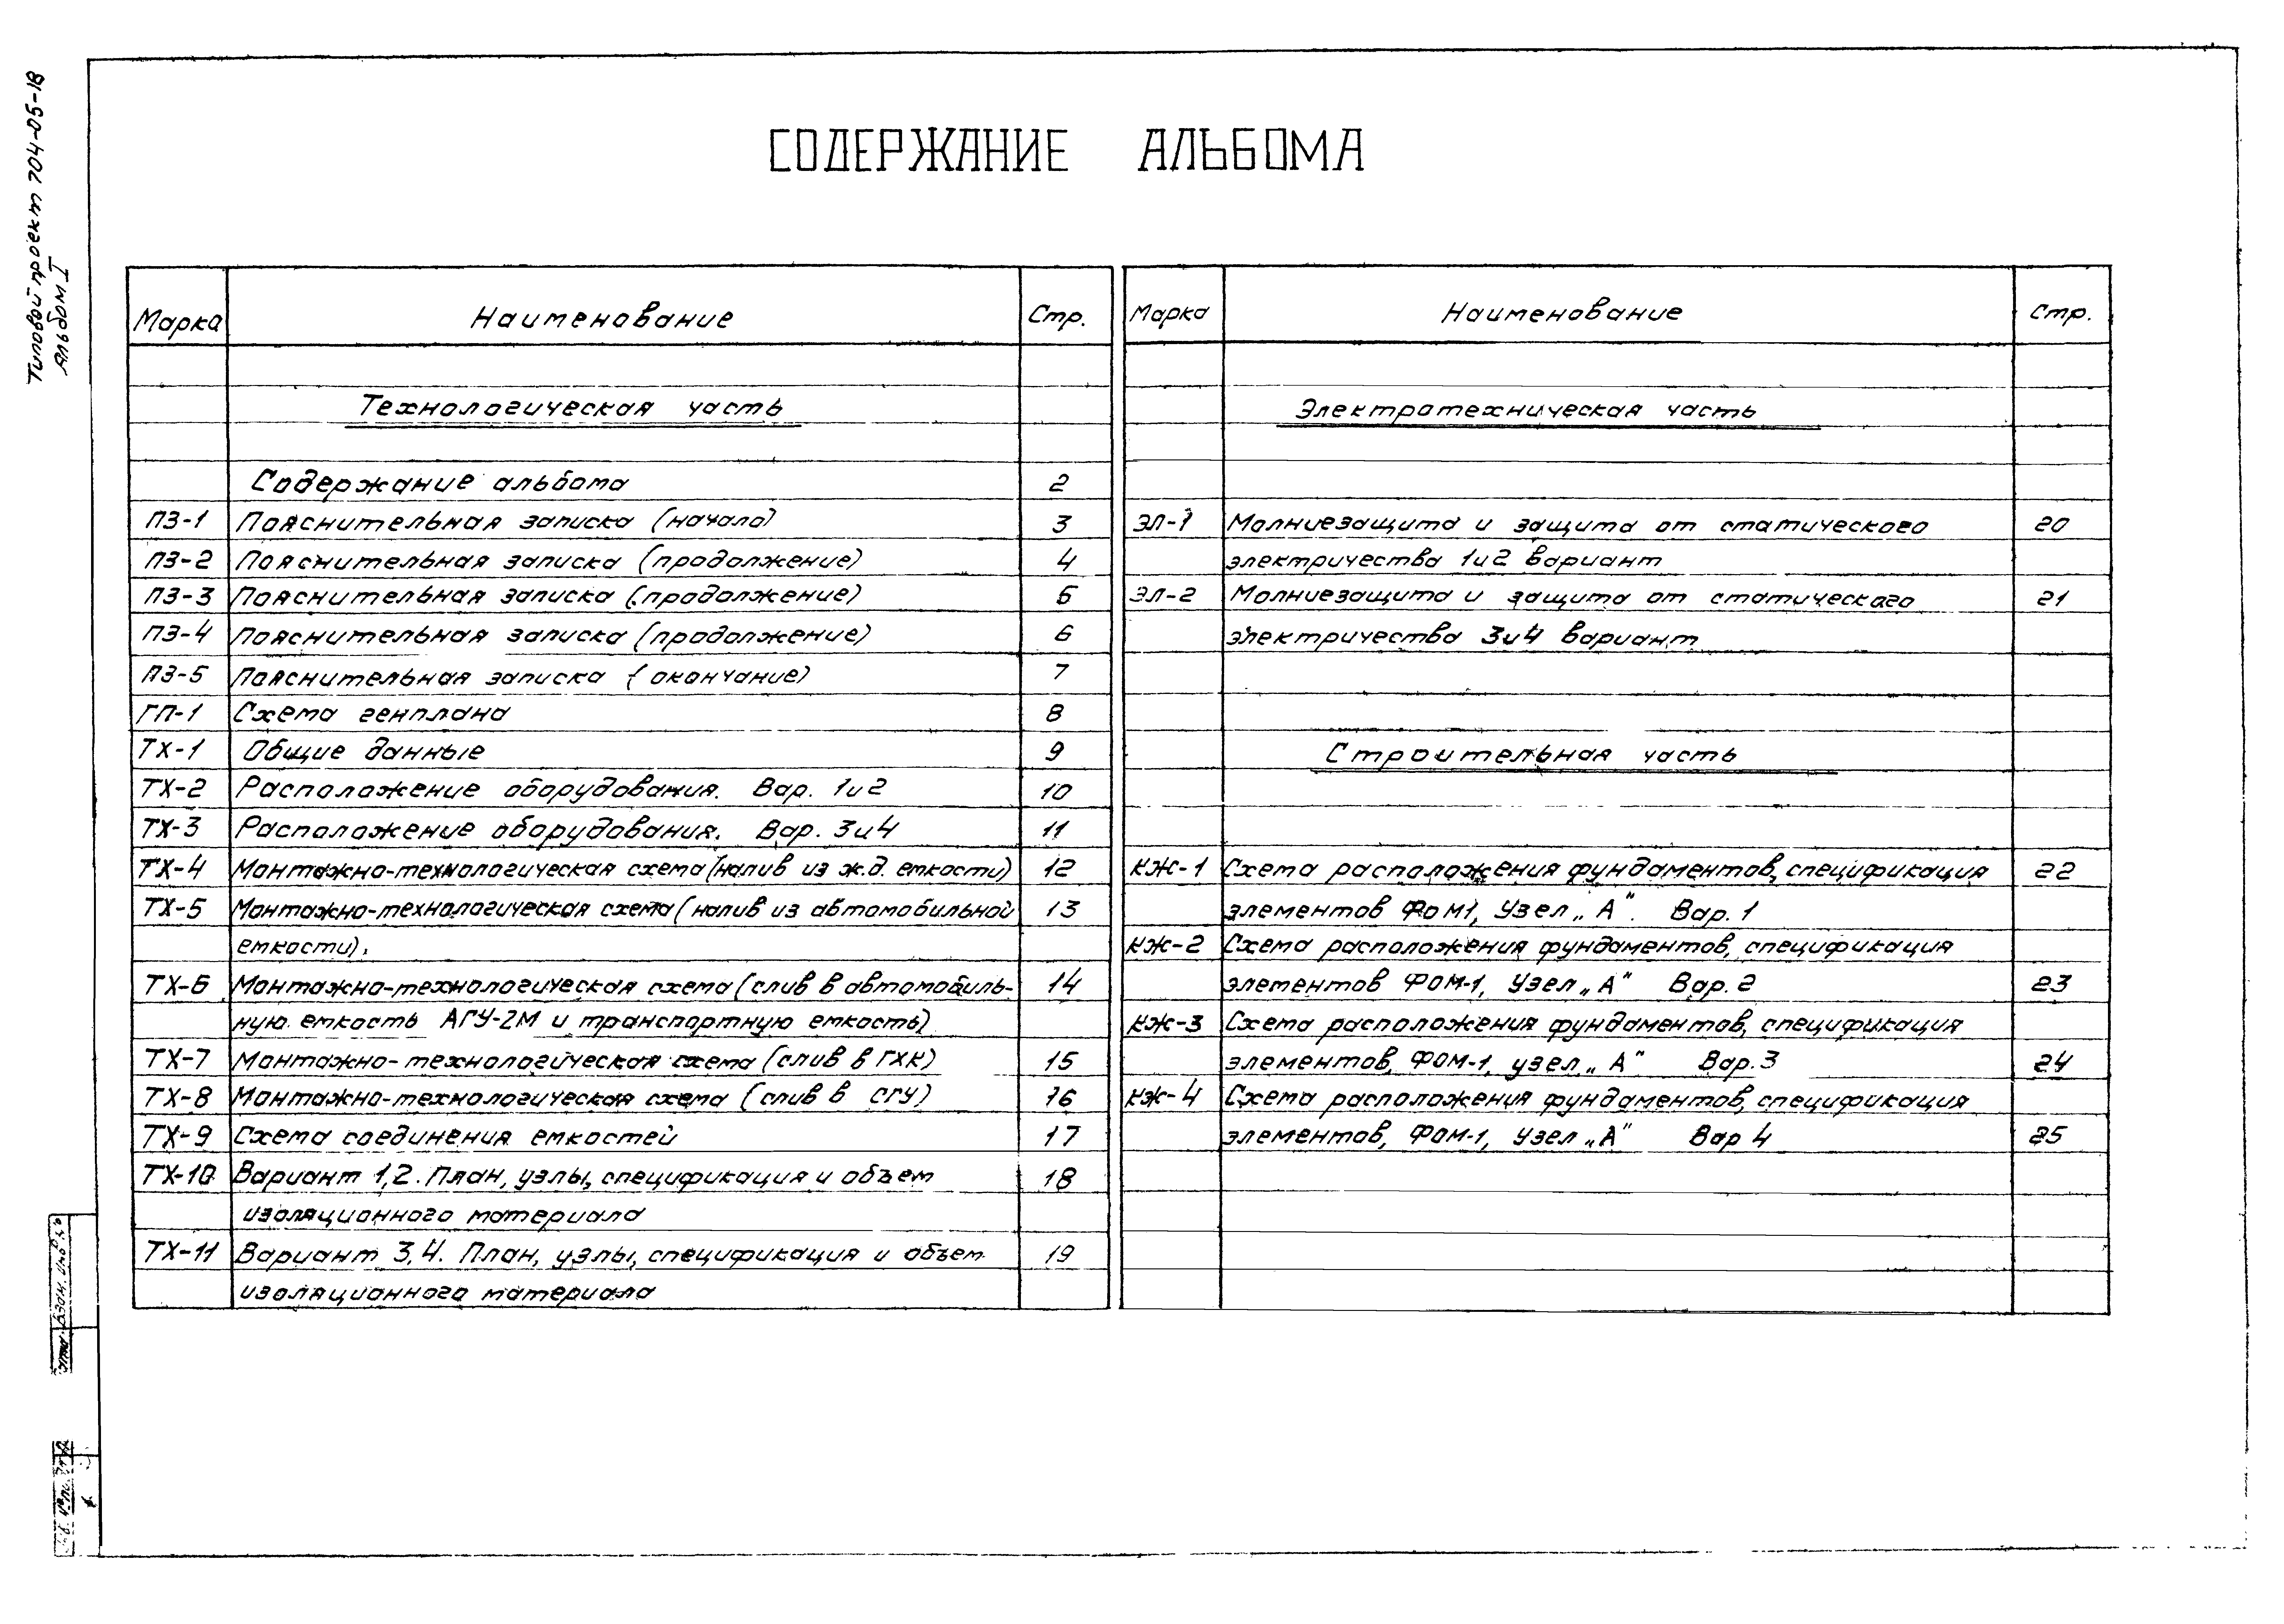 Типовой проект 704-05-18
Альбом I
СОДЕРЖАНИЕ АЛЬБОМА
Марка Наименование Стр.
Технологическая часть
Содержание альбома 2
ПЗ-1 Пояснительная записка (начало) 3
ПЗ-2 Пояснительная записка (продолжение) 4
ПЗ-3 Пояснительная записка (продолжение) 5
ПЗ-4 Пояснительная записка (продолжение) 6
ПЗ-5 Пояснительная записка (окончание) 7
ГП-1 Схема генплана 8
ТХ-1 Общие данные 9
ТХ-2 Расположение оборудования. Вар. 1и2 10
ТХ-3 Расположение оборудования. Вар. 3и4 11
ТХ-4 Монтажно-технологическая схема (налив из ж.д. емкости) 12
ТХ-5 Монтажно-технологическая схема (налив из автомобильной 13
емкости).
ТХ-6 Монтажно-технологическая схема (слив в автомобиль- 14
ную емкость АГУ-2М и транспортную емкость)
ТХ-7 Монтажно-технологическая схема (слив в ГХК) 15
ТХ-8 Монтажно-технологическая схема (слив в СГУ) 16
ТХ-9 Схема соединения емкостей 17
ТХ-10 Вариант 1,2. План, узлы, спецификация и объем 18
изоляционного материала
ТХ-11 Вариант 3,4. План, узлы, спецификация и объем 19
изоляционного материала
Марка Наименование Стр.
Электротехническая часть
ЭЛ-1 Молниезащита и защита от статического 20
электричества 1и2 вариант
ЭЛ-2 Молниезащита и защита от статического 21
электричества 3и4 вариант
Строительная часть
КЖ-1 Схема расположения фундаментов, спецификация 22
элементов ФОМ1, Узел „А". Вар. 1
КЖ-2 Схема расположения фундаментов, спецификация
элементов ФОМ-1, Узел „А" Вар. 2 23
КЖ-3 Схема расположения фундаментов, спецификация
элементов, ФОМ-1, узел „А" Вар. 3 24
КЖ-4 Схема расположения фундаментов, спецификация
элементов, ФОМ-1, Узел „А" Вар 4 25
Взам. инв.